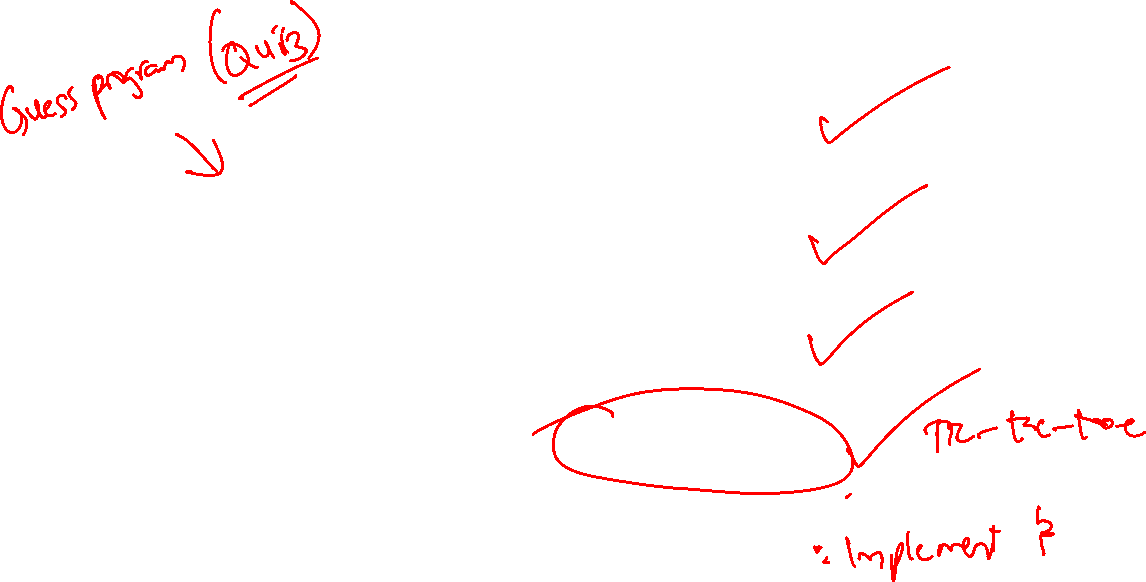 Guess program (Quiz)
Tic-tac-toe
: Implement